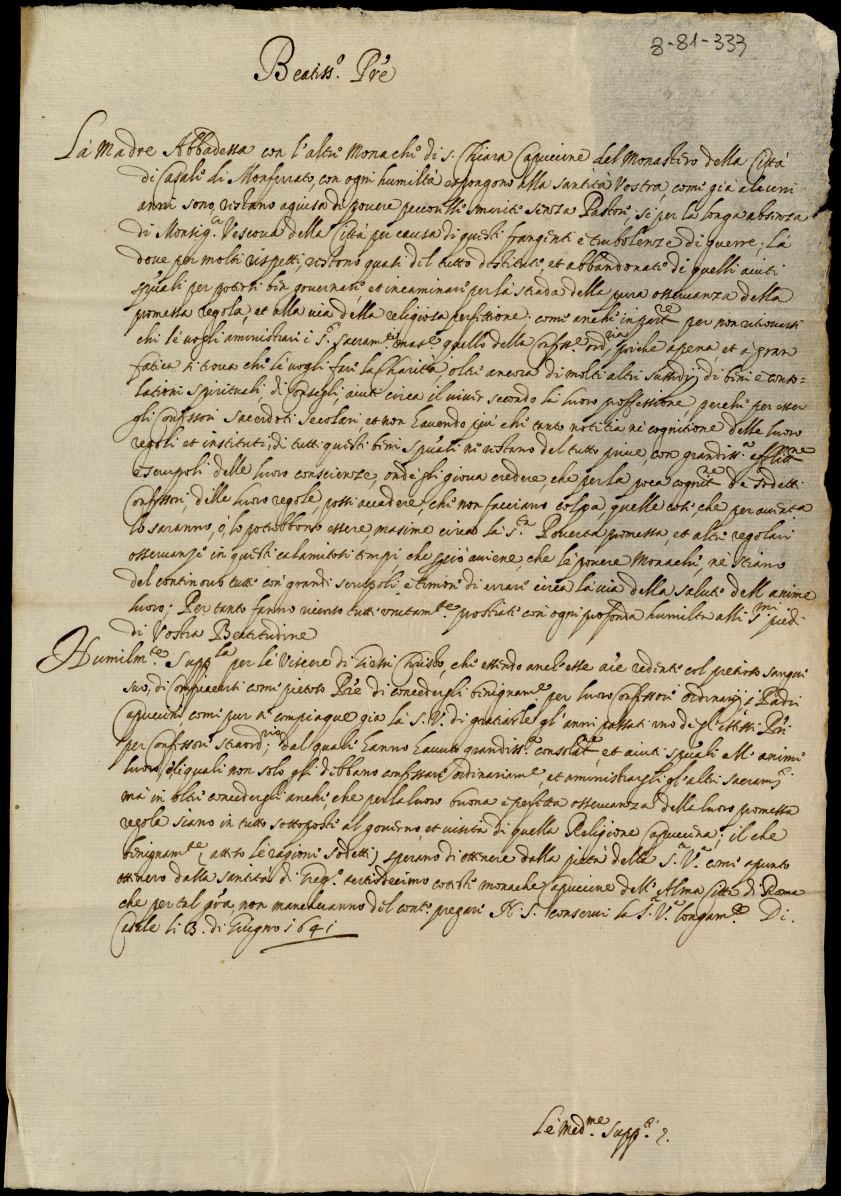 8-81-333
Beatiss.º Pre
La Madre Abbadessa con l'altre Monache di S. Chiara Capuccine del Monastero della Città
di Casale di Monferrato, con ogni humiltà espongono alla Santità Vostra, come già alcuni
anni sono, restano a guisa di povere pecorelle smarite senza Pastore, sì per la longa absenza
di Monsig.r Vescovo della Città per causa di questi frangenti e turbolenze di guerre; Là
dove per molti rispetti, restono quasi del tutto destitute, et abbandonate di quelli aiuti
spūali per potersi ben governare et incaminare per la strada della pura osservanza della
promessa regola, et alla via della religiosa perfettione. come anche in part.re per non ritrovarsi
chi le vogli aministrare i S.ti Sacram.ti mas.e quello della Confess.e ord.ria, poiche apena et à gran
fatica si trova chi li vogli fare la Charità, oltre ancora di molti altri sussidij di beni e conso=
lationi spirituali, di Consegli, aiuti circa il viver secondo la loro professione, perche per esser
gli Confessori Sacerdoti Secolari, et non havendo più che tanto notitia nè cognitione delle loro
regole et instituti, di tutti questi beni spūali ne restano del tutto prive, con grandiss.a afflitt.ne
e scrupoli delle loro conscienze, onde gli giova credere, che per la poca cognit.ne de sodetti
Confessori, delle loro regole, possi accadere, che non facciano colpa, quelle cose che per avventa
lo saranno, ò lo potrebbono essere masime circa la S.ta Povertà promessa, et altre regolari
osservanze in questi calamitosi tempi che perciò aviene che le povere Monache, ne stiano
del continovo tutte con grandi scrupoli, e timore di errare circa la via della salute dell'anime
loro; Per tanto fanno ricorso tutte unitam.te prostrate con ogni profonda humiltà alli S.mi piedi
di Vostra Beatitudine
Humilm.te Supp.la per le viscere di Giesù Christo, che essendo anch'esse aīe redente col pretioso sangue
suo, di compiacersi come pietoso Pre di concedergli benignam.e per loro Confessori ordinarij i Padri
Capuccini come pur si compiaque già la S.V. di gratiarle gl'anni passati uno de gl'istessi Pri
per Confessore straord.rio; dal quale hanno havuto grandiss.a consolat.ne, et aiuti spūali all'anime
loro; eli quali non solo gli debbano confessare ordinariam.e, et aministrargli gl'altri Sacram.ti
mà in oltre concedergli anche che per la loro buona e perfetta osservanza della loro promessa
regola siano in tutto sottoposte al governo, et visita di quella Religione Capuccina; il che
benignam.te (atteso le ragioni sodette) sperano di ottenere dalla pietà della S.tà V.a come apunto
ottenero dalla santità di Greg.º tertiodecimo coteste monache Capuccine dell'Alma Città di Roma
che per tal gra, non mancharanno del cont.º pregare N. S. conservi la S.tà V.a longam.e. Di
Casale li 3. di Giugno 1641
Le Med.me Supp.ti